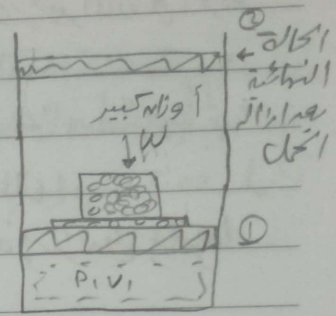 ②
الحالة
النهائية
بعد ازالة
الحمل
أوزان كبير
W
①
P₁V₁